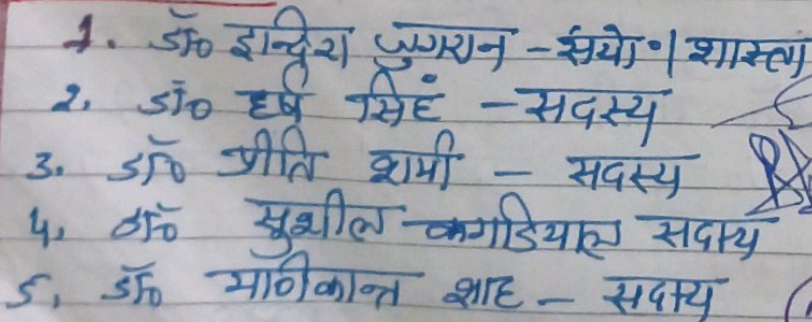 1. डॉ० इन्दिरा जुगरान - संयो०/शास्ता
2. डॉ० हर्ष सिंह - सदस्य
3. डॉ० प्रीति शर्मा - सदस्य
4. डॉ० सुशील कगडियाल सदस्य
5. डॉ० मणिकान्त शाह - सदस्य